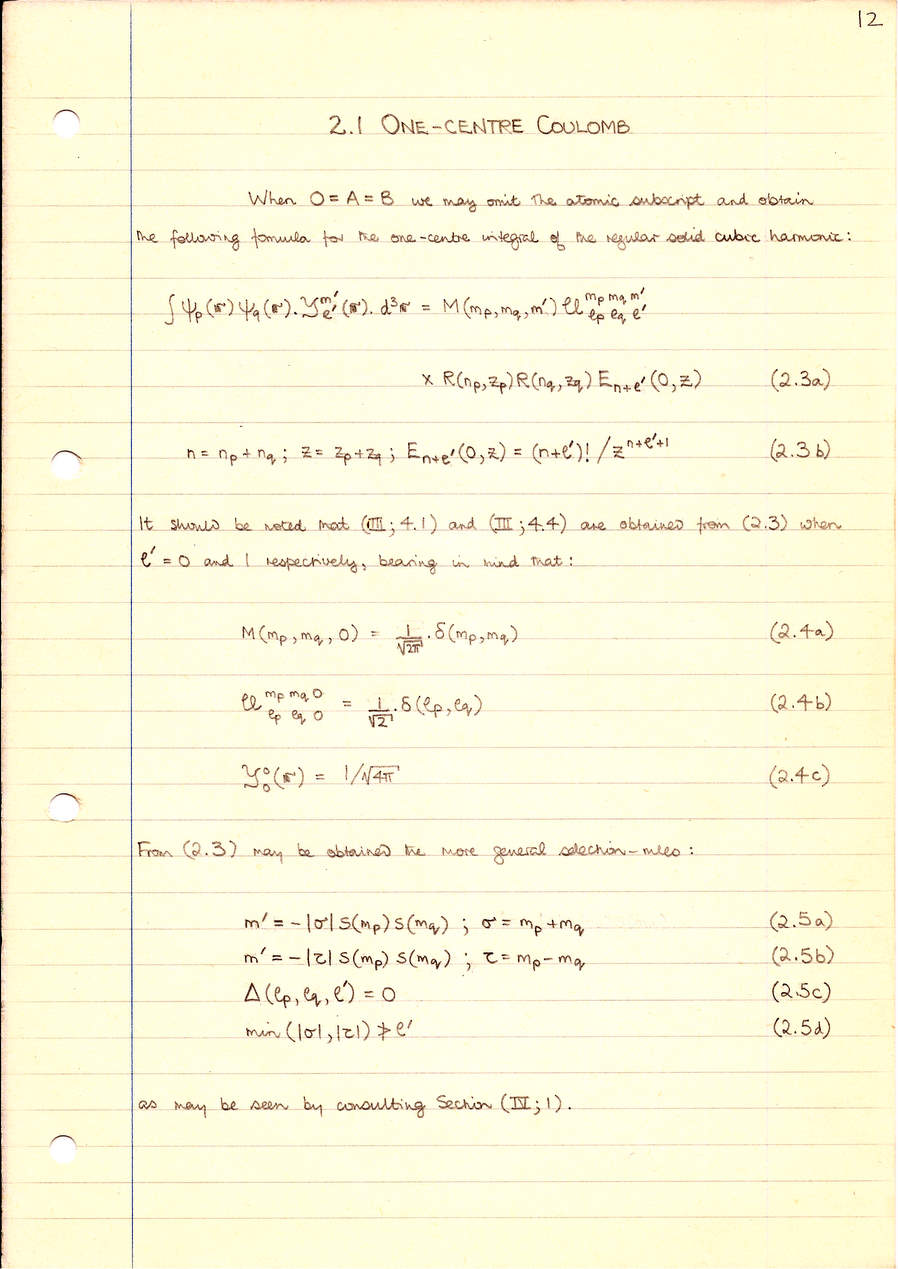 12
2.1 ONE-CENTRE COULOMB
When O = A = B we may omit the atomic subscript and obtain
the following formula for the one-centre integral of the regular solid cubic harmonic:
∫ψₚ(𝐫)ψ_q(𝐫).𝒴_{ℓ'}^{m'}(𝐫).d³𝐫 = M(mₚ,m_q,m')𝒰_{ℓₚ ℓ_q ℓ'}^{mₚ m_q m'}
× R(nₚ,zₚ)R(n_q,z_q)E_{n+ℓ'}(0,z) (2.3a)
n = nₚ + n_q ; z = zₚ + z_q ; E_{n+ℓ'}(0,z) = (n+ℓ')! / z^{n+ℓ'+1} (2.3b)
It should be noted that (III ; 4.1) and (III ; 4.4) are obtained from (2.3) when
ℓ' = 0 and 1 respectively, bearing in mind that :
M(mₚ, m_q, 0) = 1/√2π . δ(mₚ, m_q) (2.4a)
𝒰_{ℓₚ ℓ_q 0}^{mₚ m_q 0} = 1/√2 . δ(ℓₚ, ℓ_q) (2.4b)
𝒴₀⁰(𝐫) = 1/√4π (2.4c)
From (2.3) may be obtained the more general selection-rules :
m' = -|σ| S(mₚ) S(m_q) ; σ = mₚ + m_q (2.5a)
m' = -|τ| S(mₚ) S(m_q) ; τ = mₚ - m_q (2.5b)
Δ(ℓₚ, ℓ_q, ℓ') = 0 (2.5c)
min(|σ|,|τ|) ≯ ℓ' (2.5d)
as may be seen by consulting Section (IV ; 1).